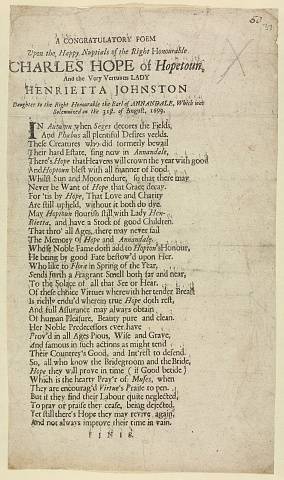 A CONGRATULATORY POEM
Upon the Happy Nuptials of the Right Honourable
CHARLES HOPE of Hopetoun,
And the Very Vertuous LADY
HENRIETTA JOHNSTON
Daughter to the Right Honourable the Earl of ANNANDALE, Which was
Solemnized on the 31st. of August, 1699.
IN Autumn when Seges decores the Fields,
And Phœbus all plentiful Desires yeelds.
These Creatures who did formerly bewail
Their hard Estate, sing now in Annandale,
There's Hope that Heavens will crown the year with good
And Hoptoun blest with all manner of Food.
Whilst Sun and Moon endure, so that there may
Never be Want of Hope that Grace decay.
For 'tis by Hope, That Love and Charity
Are still upheld, without it both do dye.
May Hoptoun flourish still with Lady Hen-
Rietta, and have a Stock of good Children.
That thro' all Ages, there may never fail
The Memory of Hope and Annandale.
Whose Noble Fame doth add to Hopton's Honour,
He being by good Fate bestow'd upon Her.
Who like to Flora in Spring of the Year,
Sends forth a Fragrant Smell both far and near,
To the Solace of all that See or Hear.
Of these choice Virtues wherewith her tender Breast
Is richly endu'd wherein true Hope doth rest,
And full Assurance may always obtain
Of human Pleasure, Beauty pure and clean.
Her Noble Predecessors ever have
Prov'd in all Ages Pious, Wise and Grave,
And famous in such actions as might tend
Their Countrey's Good, and Int'rest to defend.
So, all who know the Bridegroom and the Bride,
Hope they will prove in time (if Good betide)
Which is the hearty Pray'r of Muses, when
They are encourag'd Virtue's Praise to pen.
But if they find their Labour quite neglected,
To pray or praise they cease, being dejected,
Yet still there's Hope they may revive again,
And not always improve their time in vain.
FINIS.